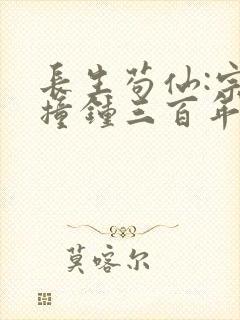 長生茍仙:宗
撞鐘三百年
莫喀尔